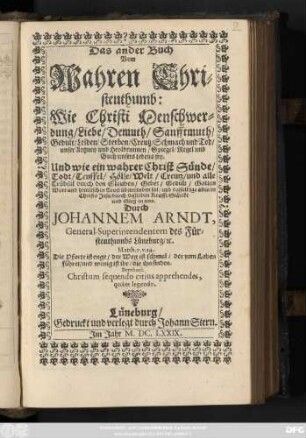 Das ander Buch
Vom
Wahren Chri-
stenthumb:
Wie Christi Menschwer-
dung/Liebe/Demuth/Sanfftmuth/
Gedult/Leiden/Sterben/Creutz/Schmach und Tod/
unser Artzney und Heilbrunnen/Spiegel/Regel und
Buch unsers Lebens sey.
Und wie ein wahrer Christ Sünde/
Todt/Teuffel/Hölle/Welt/Creutz/und alle
Trübsal durch den Glauben/Gebet/Gedult/Gottes
Durch
JOHANNEM ARNDT,
General-Superintendentem des Für-
stenthumbs Lüneburg/&c.
Matth. 7. v. 14.
Die Pforte ist enge/und der Weg ist schmal/der zum Leben
führet/und wenig ist ihr/die ihn finden.
Christum sequendo citius apprehendes,
quàm legendo.
Lüneburg/
Gedruckt und verlegt durch Johann Stern.
Im Jahr M. DC. LXXIX.